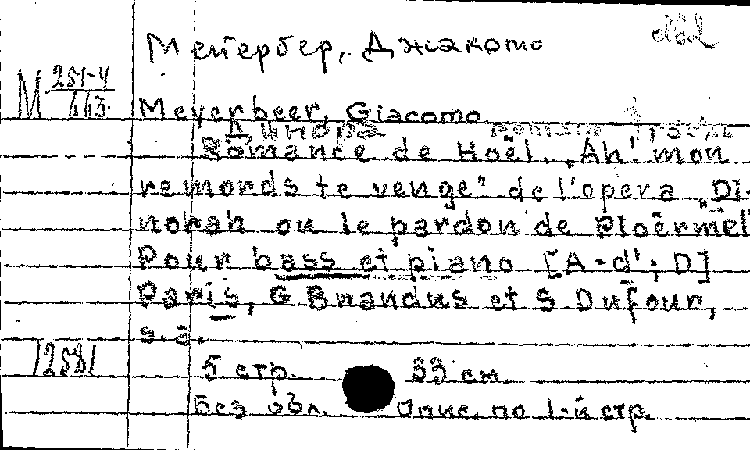 Мейербер, Джакомо
М 251-4
663
Meyerbeer, Giacomo
Динора
Romance de Hoël. „Ah! mon
remonds te venge" de l'opera „Di-
norah ou le pardon de Ploërmel"
Pour bass et piano [A-d'; D]
Paris, G Brandus et S Dufour,
s.a.
12581
5 стр. 33 см.
Без обл. Опис. по 1-й стр.